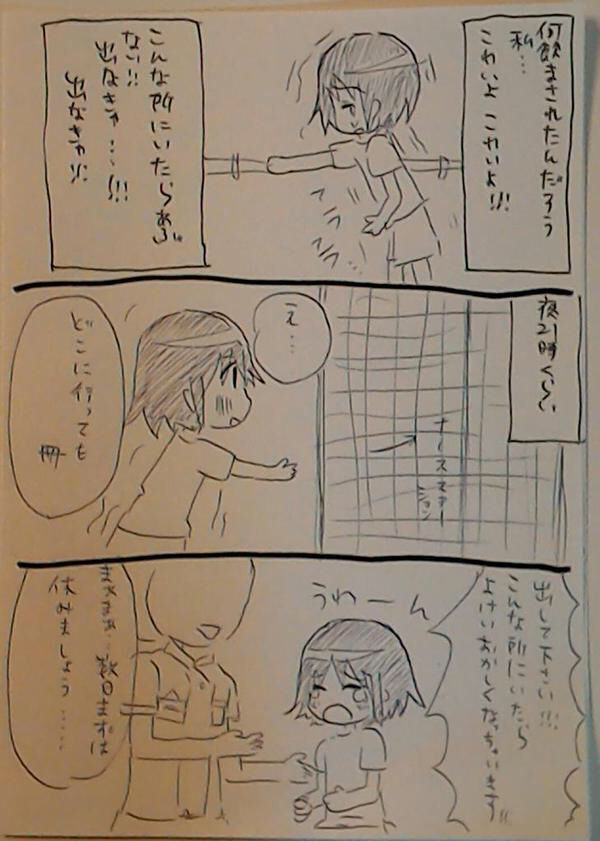 何飲まされたんだろう
私…
こわいよ こわいよ!!!
こんな所にいたらあぶ
ない!!
出なきゃ…!!!
出なきゃ!!
フラ
フラ…
夜21時くらい
ナースステー
ション
え…
どこに行っても
柵
出して下さい!!!
こんな所にいたら
よけいおかしくなっちゃいます!!
うわーん
まぁまぁ…数日まずは
休みましょう……